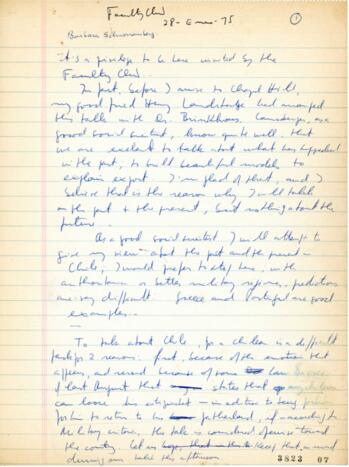 Faculty Club
28-Enero-75
1
Barbara
It's a privilege to be here invited by the
Faculty Club.
In fact, before I came to Chapel Hill,
my good friend Henry Landsberger had arranged
this talk with Dr. Brinkhous. Landsberger, as a
good social scientist, knows quite well that
we are excellent to talk about what has happened
in the past, to build beautiful models to
explain expost. I'm glad of that, and I
believe that is the reason why I will talk
on the past & the present, but nothing about the
future.
As a good social scientist I will attempt to
give my view about the past and the present in
Chile, I would prefer to stop here, with
authoritarian or better military regimes, predictions
are very difficult. Greece and Portugal are good
examples.
To talk about Chile, for a chilean is a difficult
task for 2 reasons: first, because of the emotion that
appears, and second because of some law
of last August that states that any chilean
can loose his citizenship in addition to being
for him to return to his fatherland, if according to
Military criteria, the talk is considered
the country. Let us keep that in mind
during our talk this afternoon.
3823 07